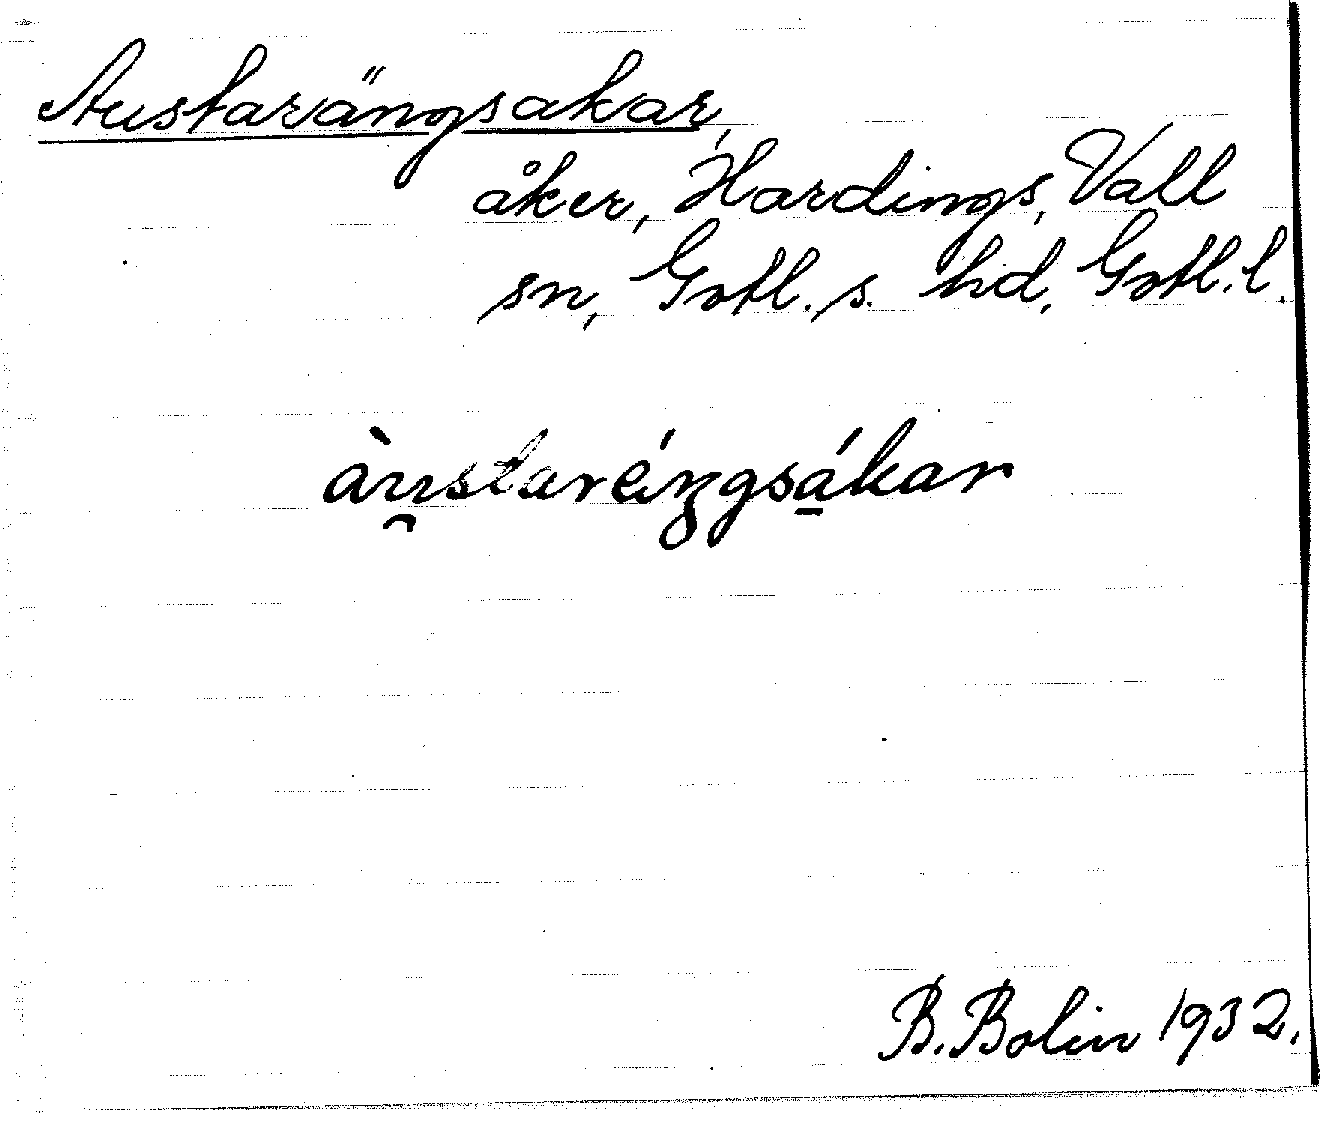 Austarängsakar,
åker, Hardings, Vall
sn, Gotl. s. hd, Gotl. l.
àu̯staréŋgsá̱kar
B. Bolin 1932.